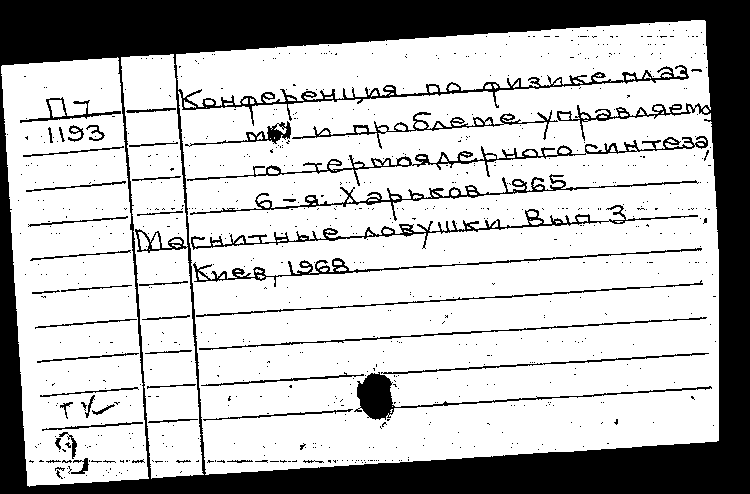 П7
1193
Конференция по физике плаз-
мы и проблеме управляемо
го термоядерного синтеза,
6-я. Харьков 1965.
Магнитные ловушки. Вып 3.
Киев, 1968.